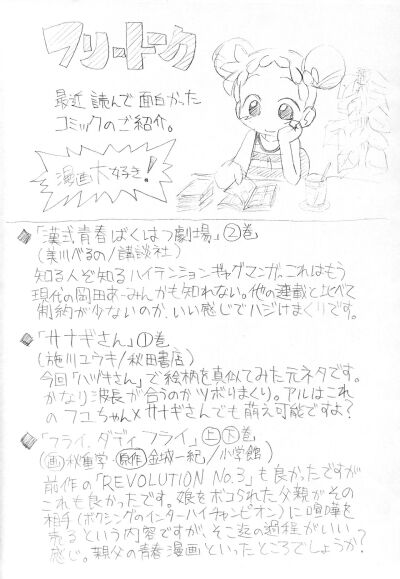 フリートーク
最近読んで面白かった
コミックのご紹介。
漫画大好き!
◆「漢式青春ばくはつ劇場」②巻
(美川べるの/講談社)
知る人ぞ知るハイテンションギャグマンガ。これはもう
現代の岡田あーみんかも知れない。他の連載と比べて
制約が少ないのか、いい感じでハジけまくりです。
◆「サナギさん」①巻
(施川ユウキ/秋田書店)
今回「ハヅキさん」で絵柄を真似てみた元ネタです。
かなり波長が合うのかツボりまくり。アルはこれ
のフユちゃん×サナギさんでも萌え可能ですよ?
◆「フライ,ダディ,フライ」上下巻
(画)秋重学・(原作)金城一紀/小学館)
前作の「REVOLUTION No.3」も良かったですが
これも良かったです。娘をボコられた父親がその
相手(ボクシングのインターハイチャンピオン)に喧嘩を
売るという内容ですが、そこ迄の過程がいい
感じ。親父の青春漫画といったところでしょうか?